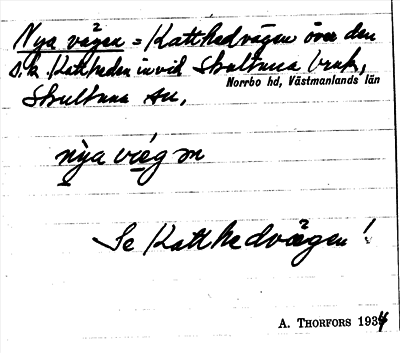 Nya vägen = Katthedvägen över den
s.k. Kattheden invid Skultuna bruk,
Norrbo hd, Västmanlands län
Skultuna sn,
nỳa væ̀gən
Se Katthedvägen!
A. THORFORS 1934